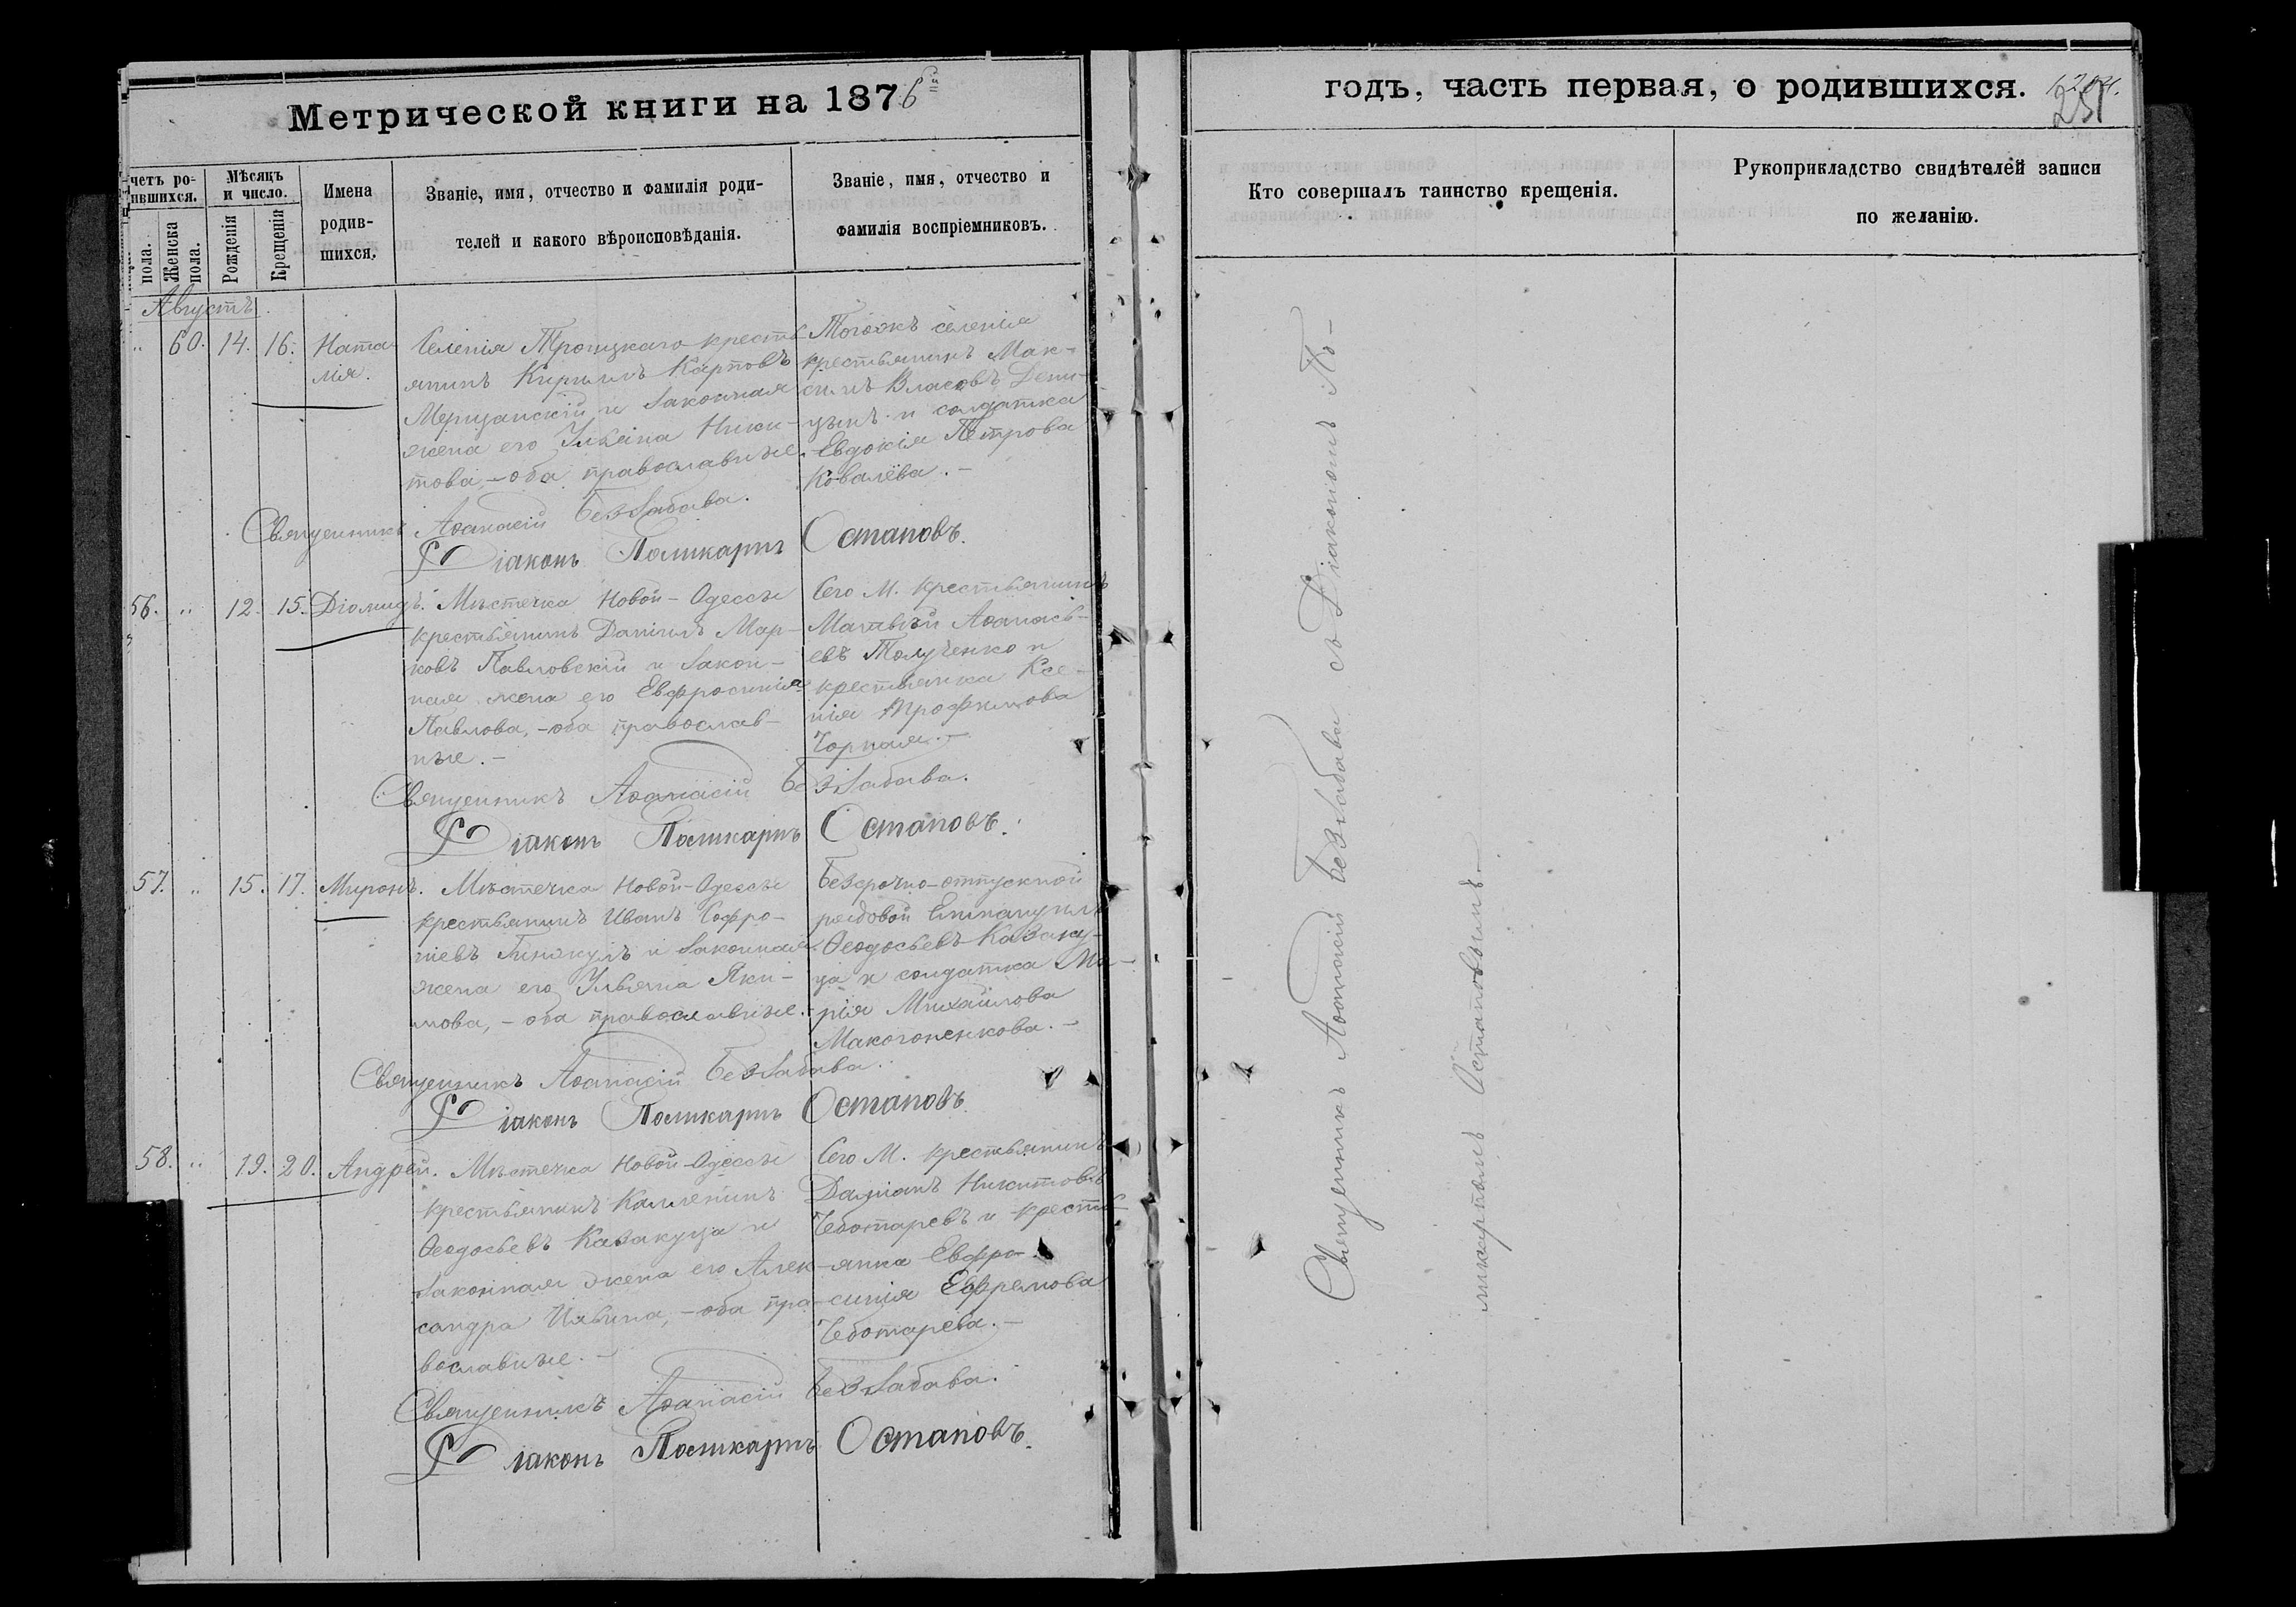 Метрической книги на 1876й
годъ, часть первая, о родившихся.
251
четъ ро-
ившихся.
пола.
Женска
пола.
Мѣсяцъ
и число.
Рожденія
Крещенія
Имена
родив-
шихся.
Званіе, имя, отчество и фамилія роди-
телей и какого вѣроисповѣданія.
Званіе, имя, отчество и
фамилія воспріемниковъ.
Кто совершалъ таинство крещенія.
Рукоприкладство свидѣтелей записи
по желанію.
Августъ.
„ 60. 14. 16.
Ната-
лія.
Селенія Троицкаго кресть-
янинъ Кириллъ Карповъ
Мерицанскій и законная
жена его Ульяна Ники-
това, - оба православные.
Тогожъ селенія
крестьянинъ Мак-
симъ Власовъ Дени-
цынъ и солдатка
Евдокія Петрова
Ковалёва. -
Священникъ Аѳанасій Беззабава.
Діаконъ Поликарпъ Остаповъ.
56. „ 12. 15.
Діомидъ.
Мѣстечка Новой-Одессы
крестьянинъ Даніилъ Мар-
ковъ Павловскій и закон-
ная жена его Евфросинія
Павлова, - оба православ-
ные. -
Сего М. крестьянинъ
Матвѣй Аѳанась-
евъ Толученко и
крестьянка Ксе-
нія Трофимова
Чорная. -
Священникъ Аѳанасій Беззабава.
Діаконъ Поликарпъ Остаповъ.
57. „ 15. 17.
Миронъ.
Мѣстечка Новой-Одессы
крестьянинъ Иванъ Софро-
ніевъ и законная
жена его Ульяна Яки-
мова, - оба православные.
Безсрочно-отпускной
рядовой Еммануилъ
Ѳеодосьевъ Казаку-
ца и солдатка Ма-
рія Михайлова
Макогоненкова. -
Священникъ Аѳанасій Беззабава.
Діаконъ Поликарпъ Остаповъ.
58. „ 19. 20.
Андрей.
Мѣстечка Новой-Одессы
крестьянинъ Каллепинъ
Ѳеодосьевъ Казакуца и
законная жена его Алек-
сандра Ильина, - оба пра-
вославные. -
Сего М. крестьянинъ
Даміанъ Никитовъ
Чеботаревъ и кресть-
янка Евфро-
синія Ефремова
Чеботарева. -
Священникъ Аѳанасій Беззабава.
Діаконъ Поликарпъ Остаповъ.
Священникъ Аѳанасій Беззабава съ Діакономъ По-
ликарпомъ Остаповымъ. -